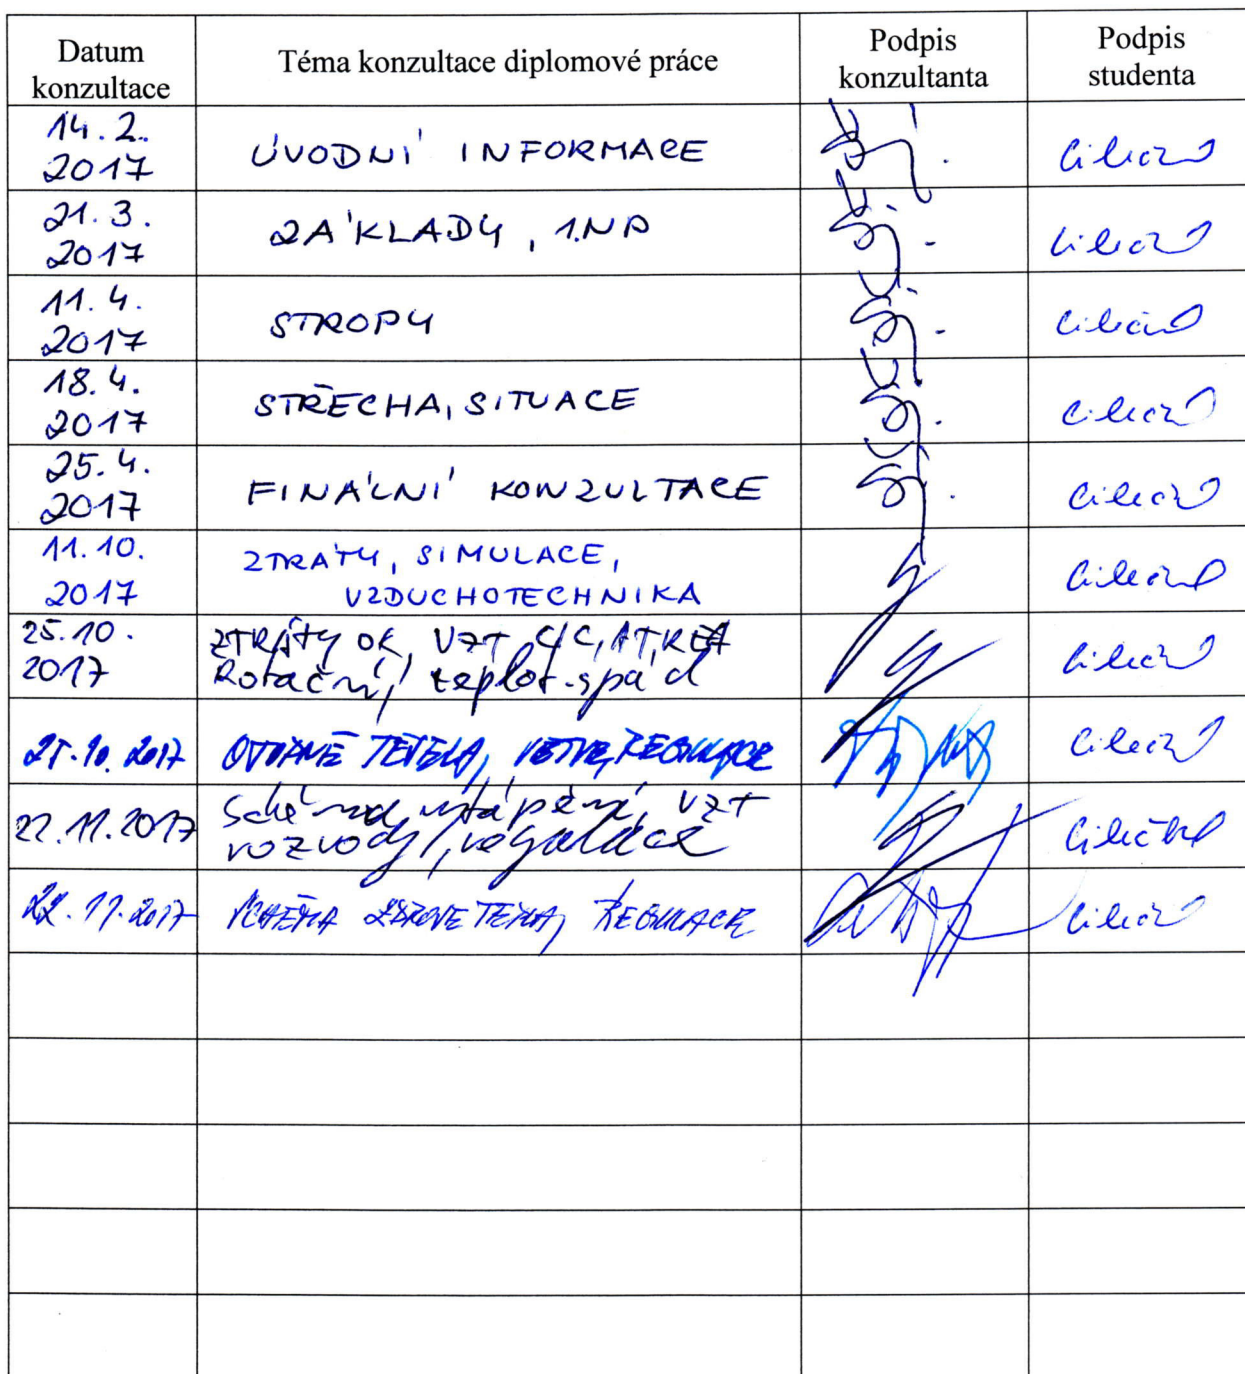 Datum konzultace
Téma konzultace diplomové práce
Podpis konzultanta
Podpis studenta
14.2. 2017
ÚVODNÍ INFORMACE
21.3. 2017
ZÁKLADY, 1.NP
11.4. 2017
STROPY
18.4. 2017
STŘECHA, SITUACE
25.4. 2017
FINÁLNÍ KONZULTACE
11.10. 2017
ZTRÁTY, SIMULACE,
VZDUCHOTECHNIKA
25.10. 2017
ZTRÁTY OK, VZT
Rotační, teplot. spád
10. 2017
TĚLESA, REGULACE
22.11.2017
Schéma vytápění, VZT
rozvody, regulace
22.11.2017
SCHÉMA REGULACE